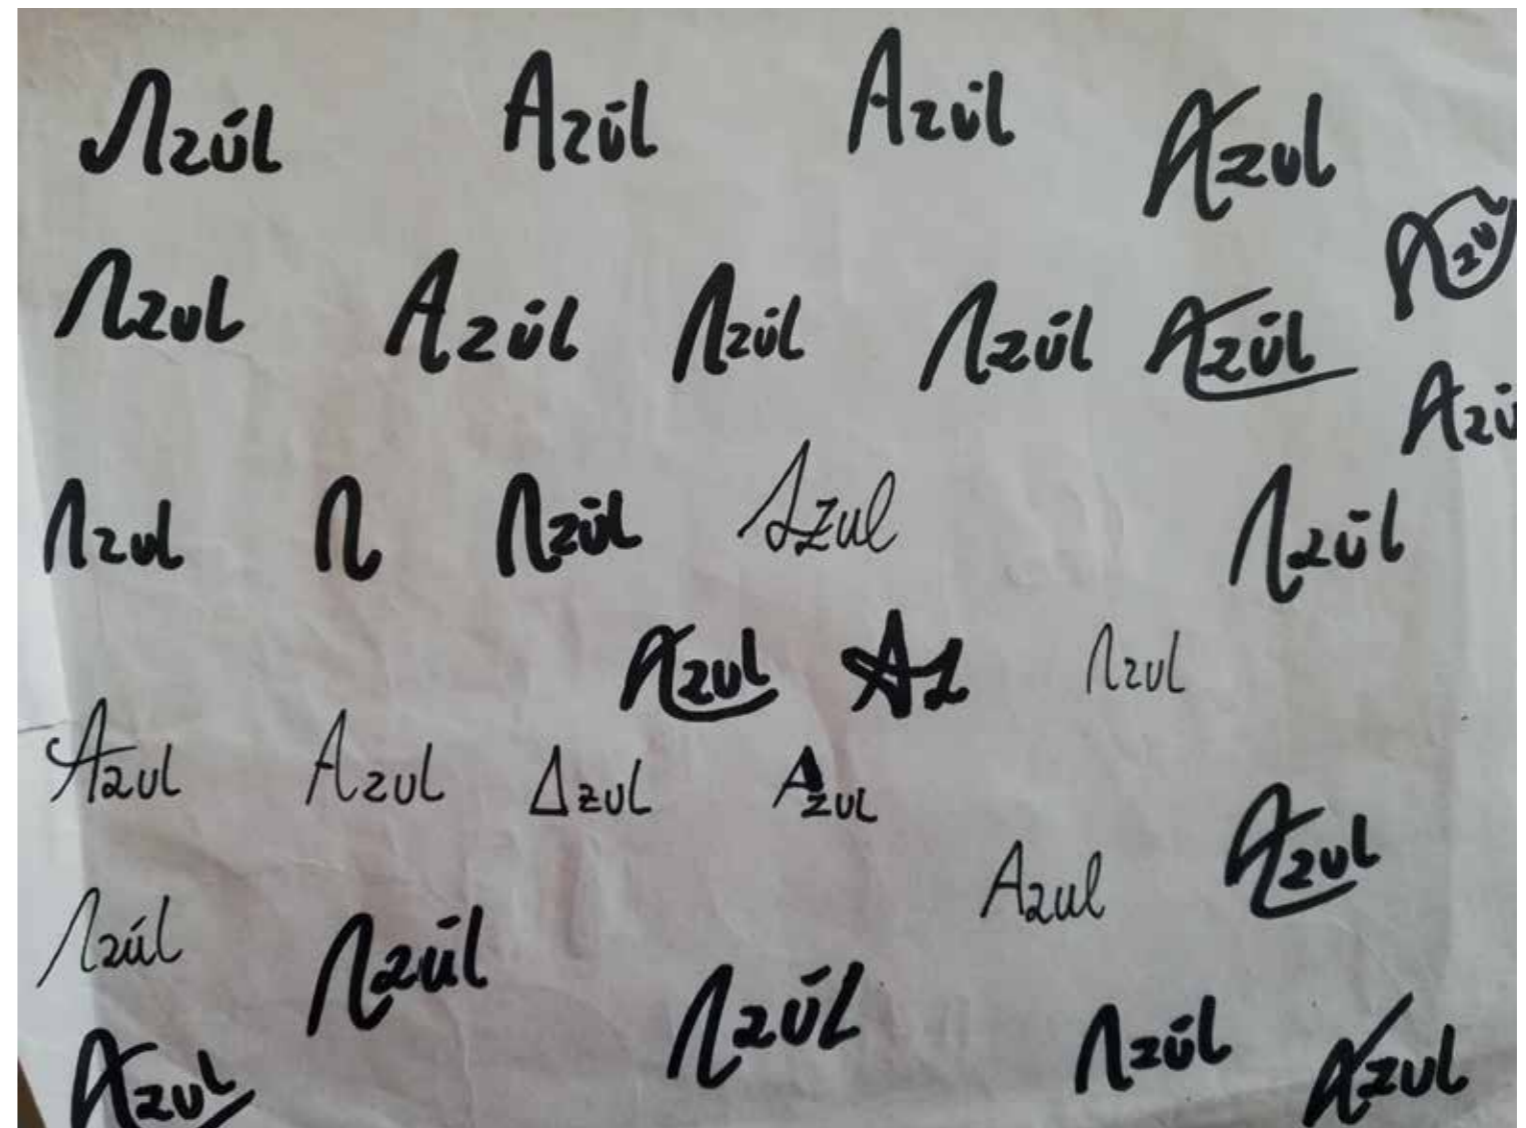 Azúl Azūl Azūl Azul
Azu
Azul Azūl Azūl Azūl Azūl
Azū
Azul A Azūl Azul Azūl
Azul Az Azul
Azul Azul Azul Azul
Azul Azul
Azúl Azūl
Azūl Azūl Azul
Azul